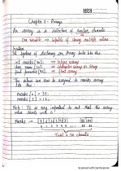 Chapter 8 - Arrays
An array is a collection of similar elements
One variable => Capable of storing multiple values
Syntax
The syntax of declaring an array looks like this
int marks [90]; => Integer array
char name [20]; => Character array or string
float percentile [90]; => float array
The values can now be assigned to marks array
like this
marks [0] = 33;
marks [1] = 12;
Note: It is very important to note that the array
index starts with 0!
Total = 90 elements